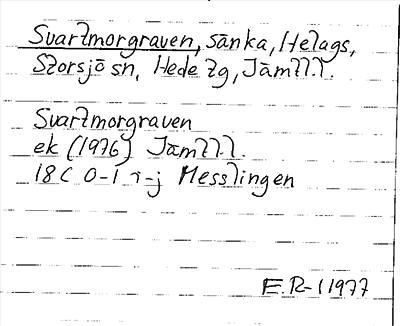 Svartmorgraven, sänka, Helags,
Storsjö sn, Hede tg, Jämtl.l.
Svartmorgraven
ek (1976) Jämtl.l.
18C 0-1 i-j Messlingen
E.R-l 1977